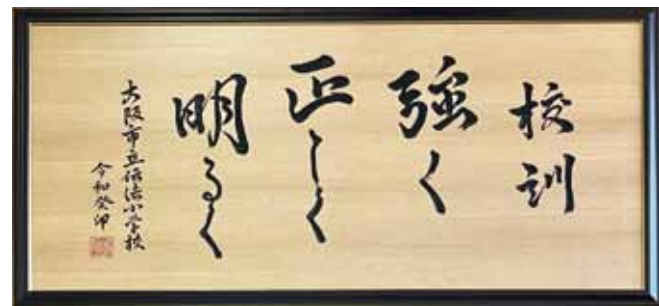 校訓
強く
正しく
明るく
大阪市立伝法小学校
令和癸卯